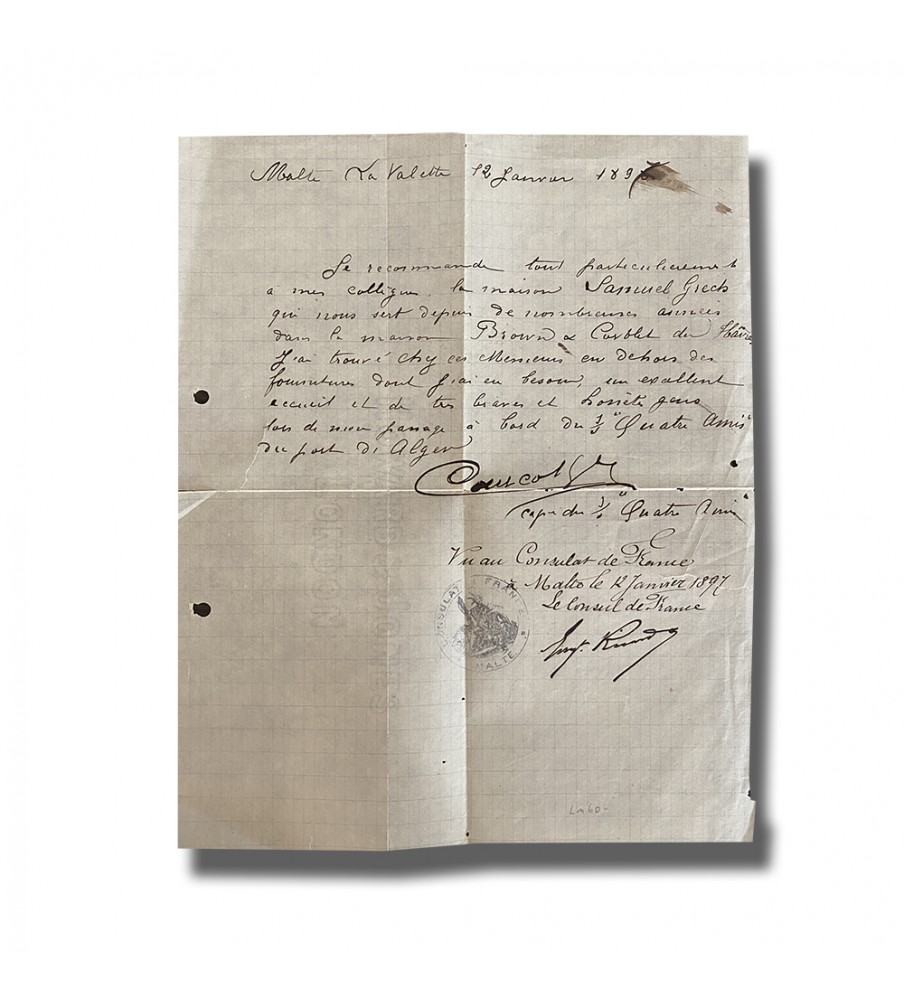 Malte La Valette 12 Janvier 189
Je recommande tout particulierement
a mes collègues la maison Samuel Grech
qui nous sert depuis de nombreuses années
dans la maison Brown & Corblet du Hâvre
J'ai trouvé chez ces Messieurs en dehors des
fournitures dont j'ai eu besoin, un exellent
accueil et de très braves et honnête gens
lors de mon passage à bord du "Quatre Amis"
du port d'Alger
capne du "Quatre Amis"
Vu au Consulat de France
à Malte le 12 Janvier 1897
Le Consul de France
CONSULAT DE FRANCE
MALTE
Lm60-